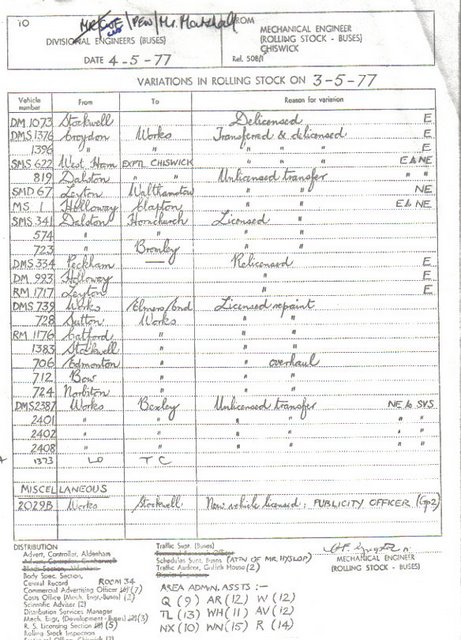 TO
Mr. Marshall
FROM
DIVISIONAL ENGINEERS (BUSES)
MECHANICAL ENGINEER
(ROLLING STOCK - BUSES)
CHISWICK
DATE 4-5-77
Ref. 508/1
VARIATIONS IN ROLLING STOCK ON 3-5-77
Vehicle number From To Reason for variation
DM 1073 Stockwell Delicensed E
DMS 1376 Croydon Works Transferred & delicensed E
1396 " " " " " E
SMS 622 West Ham EXPTL CHISWICK " " " E & NE
819 Dalston " " Unlicensed transfer " "
SMD 67 Leyton Walthamstow " " NE
MS 1 Holloway Clapton " " E & NE
SMS 341 Dalston Hornchurch Licensed "
574 " " " "
723 " Bromley " "
DMS 334 Peckham — Relicensed E
DM 923 Holloway " E
RM 1717 Leyton " E
DMS 739 Works Elmers End Licensed repaint
728 Sutton Works " "
RM 1176 Catford " " "
1383 Stockwell " " "
706 Edmonton " " overhaul
712 Bow " " "
724 Norbiton " " "
DMS 2387 Works Bexley Unlicensed transfer NE to SVS
2401 " " " " " "
2402 " " " " " "
2408 " " " " " "
1373 LD TC
MISCELLANEOUS
2029B Works Stockwell New vehicle licensed: PUBLICITY OFFICER (Gp2)
DISTRIBUTION
Advert. Controller, Aldenham
Body Spec. Section,
Central Record ROOM 34
Commercial Advertising Officer (7)
Costs Office (Mech. Engr.-Buses) (2)
Scientific Adviser (2)
Distribution Services Manager
Mech. Engr. (Development - Buses) (3)
R. S. Licensing Section (5)
Rolling Stock Inspection
Traffic Supt. (Buses)
Schedules Supt. Buses (ATN OF MR. HYSLOP)
Traffic Auditor, Gullick House (2)
AREA ADMN. ASSTS :-
Q (9) AR (12) W (12)
TL (13) WH (11) AV (12)
NX (10) WN (15) R (14)
MECHANICAL ENGINEER
(ROLLING STOCK - BUSES)